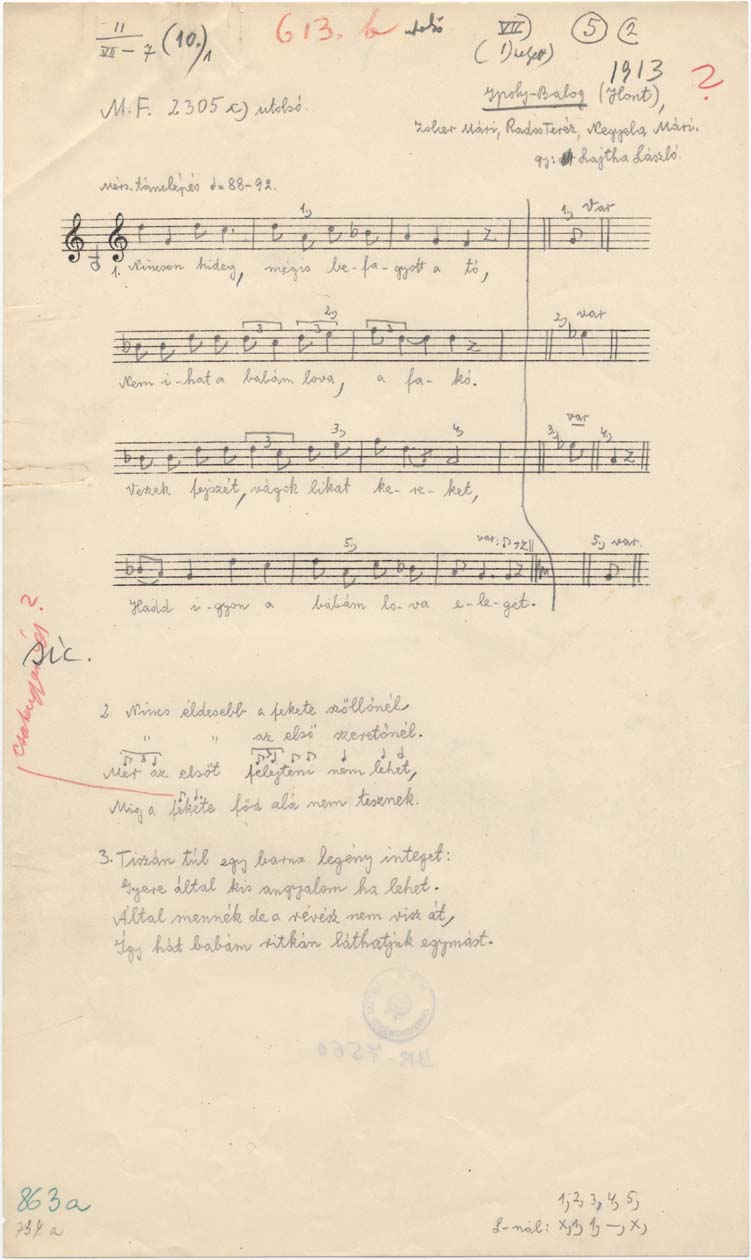 II
VII – 7 (10.)1
613. b utolsó
VII)
5 2
1913 ?
M.F. 2305 c) utolsó.
Ipoly-Balog (Hont),
Mári, Radso Teréz, Negyela Mári.
gy: Lajtha László.
Mérs. tánclépés = 88-92.
1, 1, Var
1. Nincsen hideg, mégis be-fa-gyott a tó,
3 3 2, 3 2, var
Nem i-hat a babám lova, a fa-kó.
3 3, 4, 3, var 4,
Veszek fejszét, vágok likat ke-re-ket,
5, var: 5, var.
Hadd i-gyon a babám lo-va e-le-get.
?
sic.
2. Nincs éldesebb a fekete szőllőnél
" " az első szeretőnél.
Mer az elsőt felejteni nem lehet,
Mig a fekete főd alá nem tesznek.
3. Tiszán túl egy barna legény integet:
Gyere által kis angyalom ha lehet.
Által mennék de a révész nem visz át,
Így hát babám ritkán láthatjuk egymást.
BR-7560
863a
734 a
1, 2, 3, 4, 5,
L-nál: x, 1, 1, –, x,